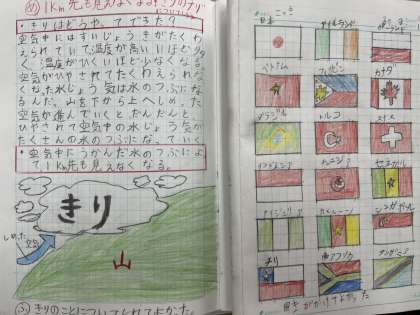 1km先も見えなくなる！きりのナゾ
・きりはどうやってできる？
空気中にはすいじょうきがたくわ
えられていて、温度が高いほど多
く、温度がひくいほど少なくなる。
空気がひやされてたくわえられな
くなった水じょう気は水のつぶにな
るんだ。山を下から上へしめった
空気が進んでいくと、だんだんと
ひやされて空気中の水じょう気が
たくさんの水のつぶになっていく
・空気中にうかんだ水のつぶによ
って1km先も見えなくなる。
きり
しめった
空気
山
きりのことについてしれてよかった。
日本
アイルランド
ベトナム
フィリピン
カナダ
ブラジル
トルコ
スイス
インドネシア
チュニジア
セネガル
ナイジェリア
カメルーン
シンガポール
チリ
南アフリカ
タンザニア
国旗がかけてよかった。